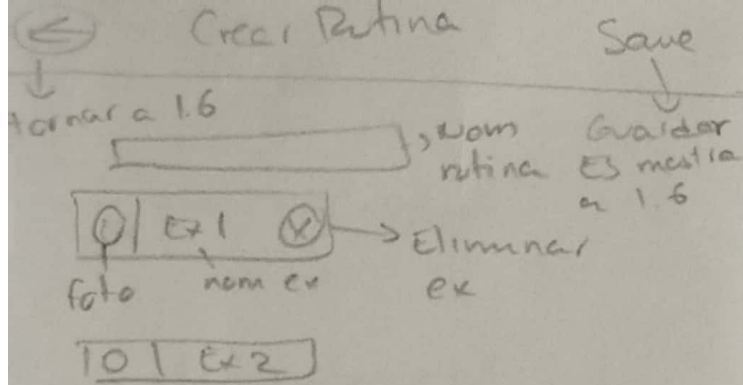 Crear Rutina
Save
tornar a 1.6
Nom
rutina
Guardar
Es mostra
a 1.6
Ex 1
Eliminar
ex
foto
nom ex
Ex 2